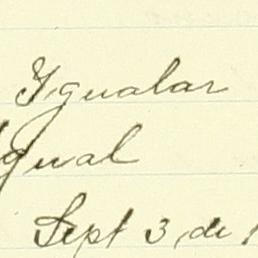 Igualar
Igual
Sept 3, de